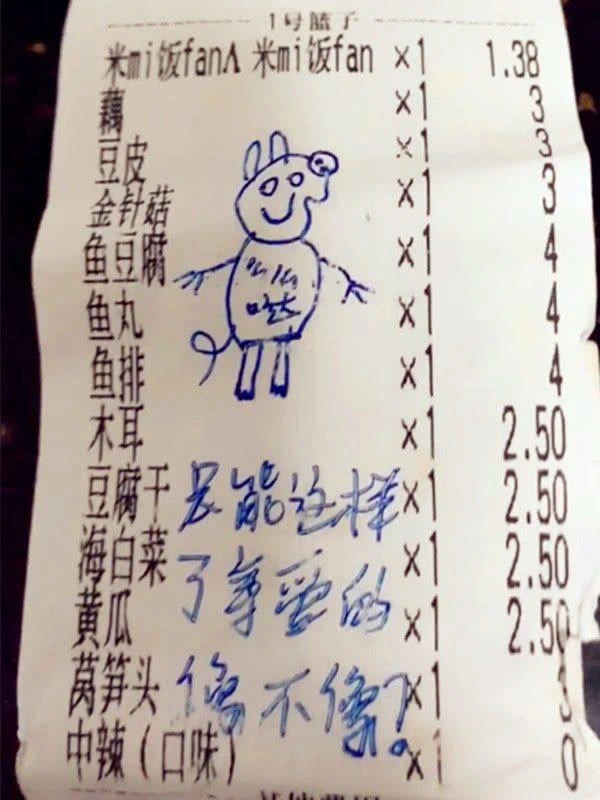 1号篮子
米mi饭fanΛ 米mi饭fan ×1 1.38
藕 ×1 3
豆皮 ×1 3
金针菇 ×1 3
鱼豆腐 ×1 4
鱼丸 ×1 4
鱼排 ×1 4
木耳 ×1 2.50
豆腐干 ×1 2.50
海白菜 ×1 2.50
黄瓜 ×1 2.50
莴笋头 ×1 3
中辣(口味) ×1 0
么么
哒
只能这样
了亲爱的
像不像?